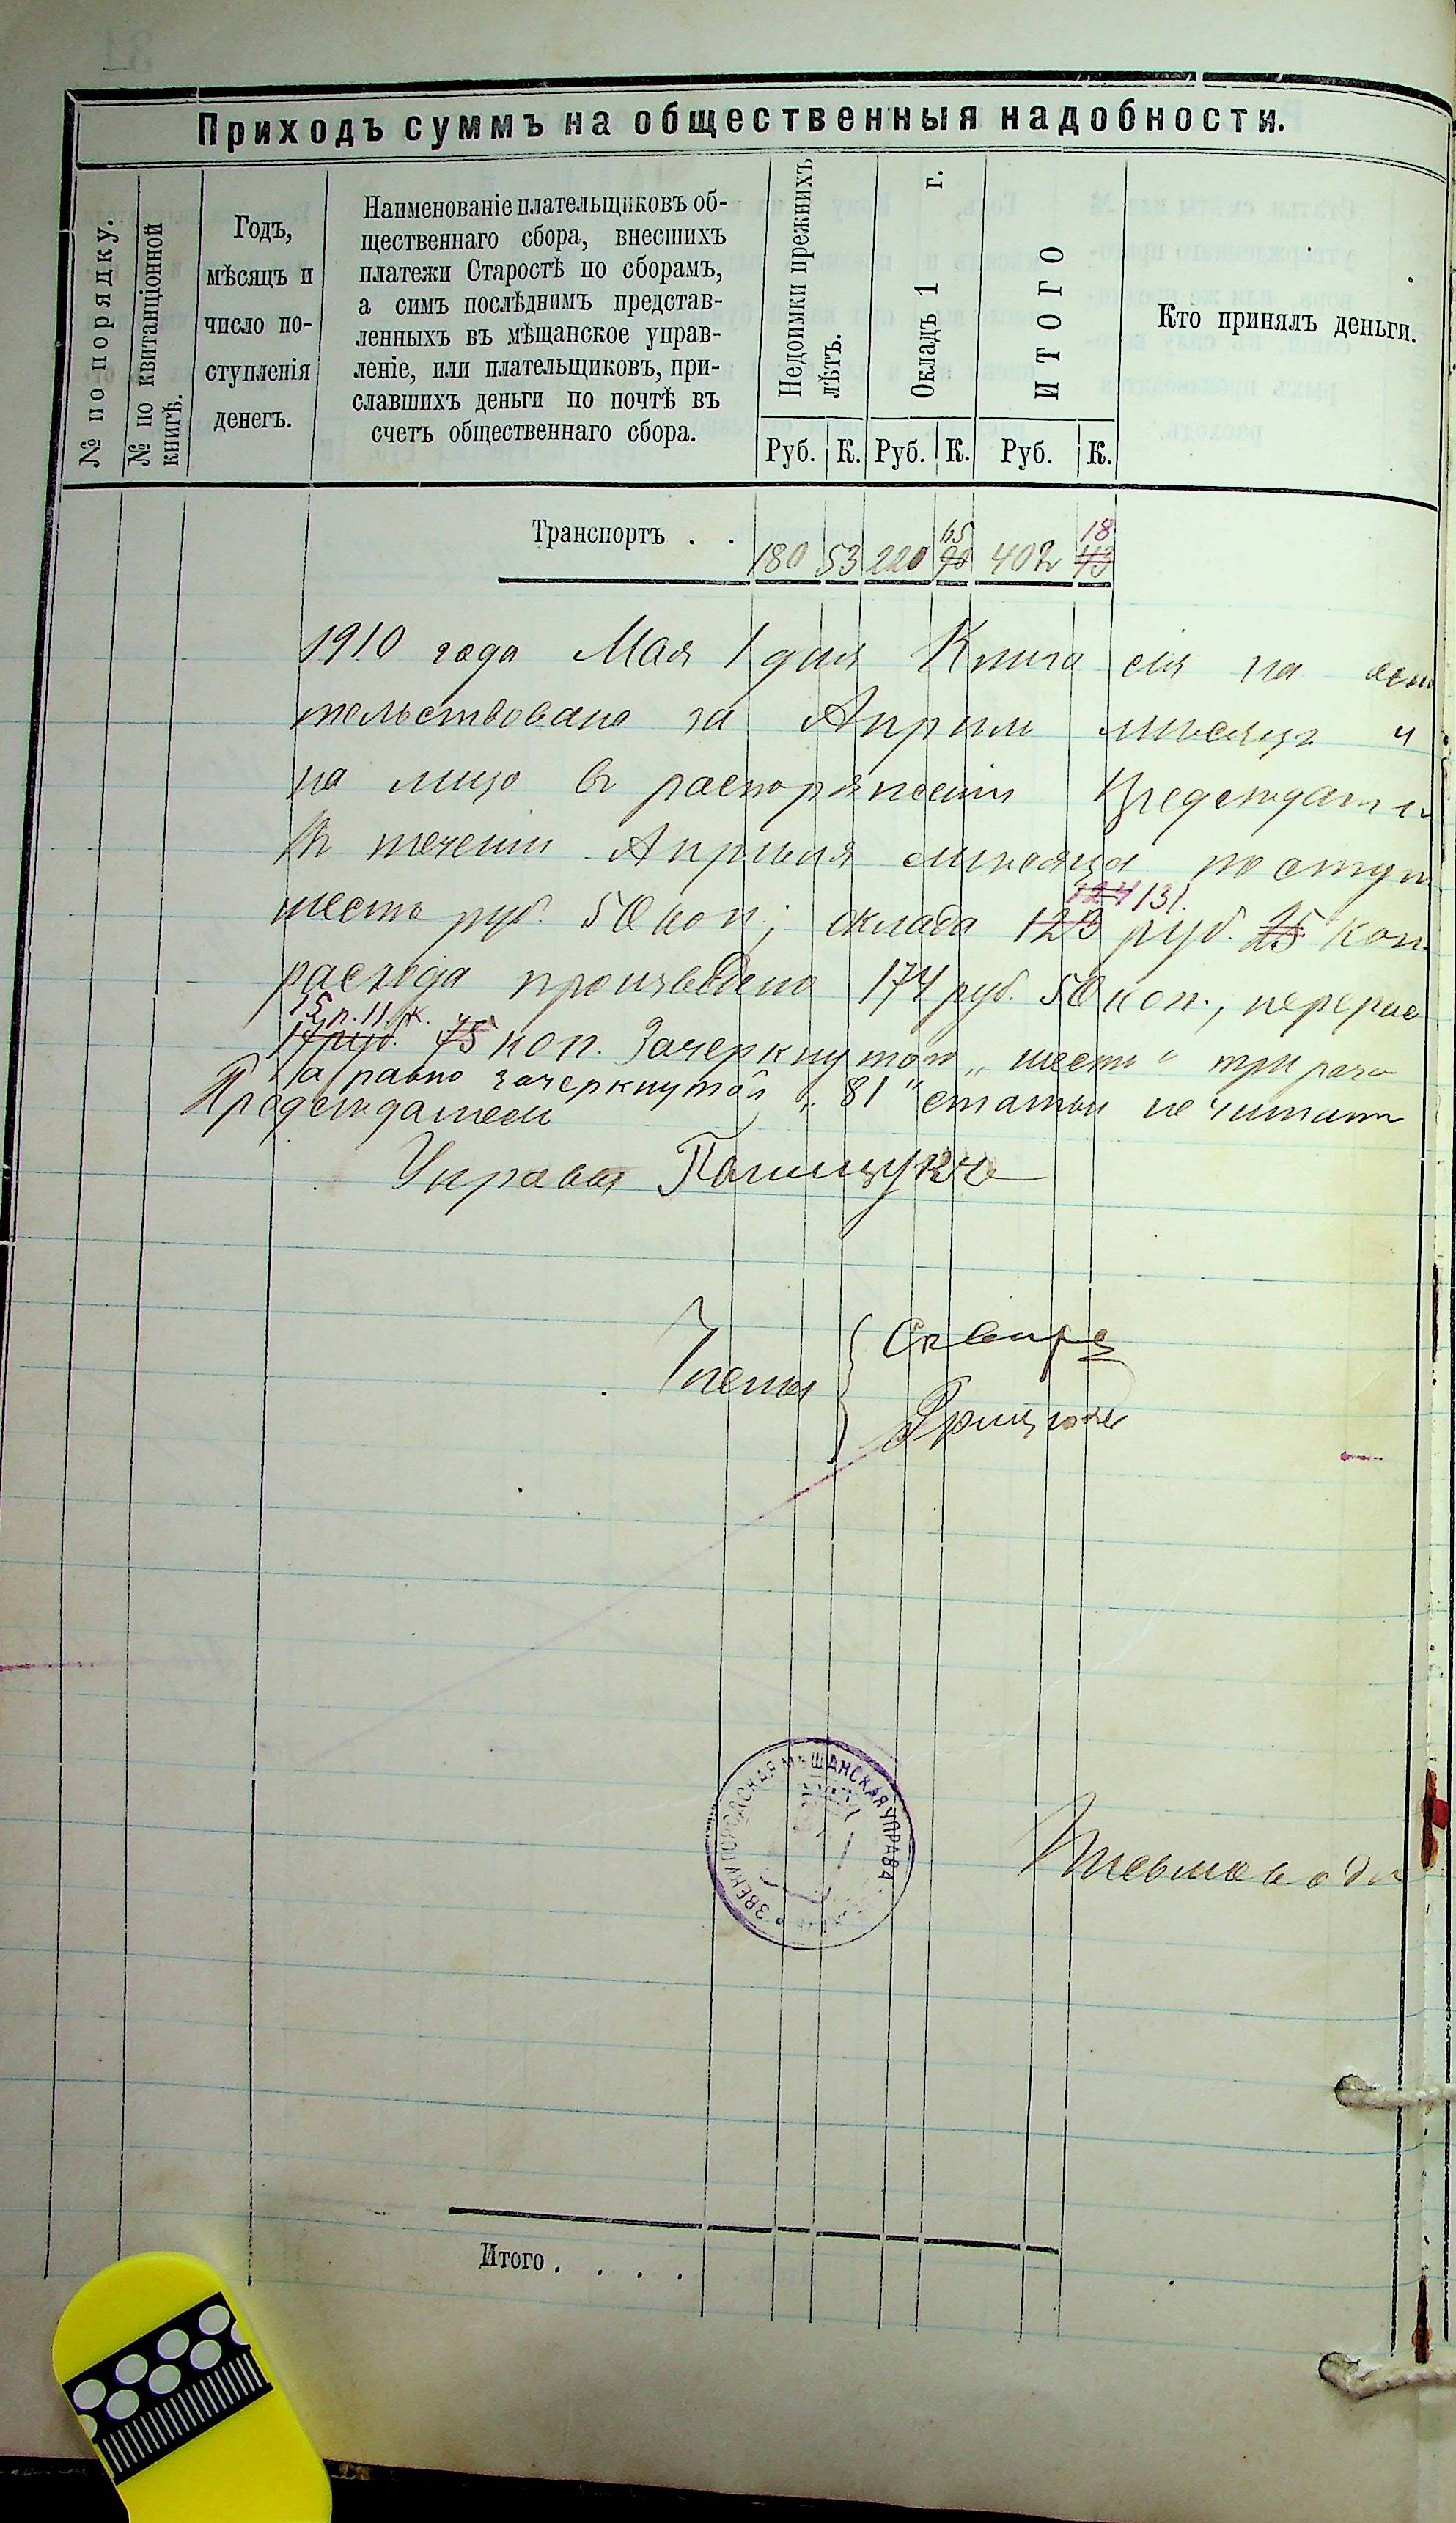 Приходъ суммъ на общественныя надобности.
№ по порядку.
№ по квитанціонной книгѣ.
Годъ,
мѣсяцъ и
число по-
ступленія
денегъ.
Наименованіе плательщиковъ об-
щественнаго сбора, внесшихъ
платежи Старостѣ по сборамъ,
а симъ послѣднимъ представ-
ленныхъ въ мѣщанское управ-
леніе, или плательщиковъ, при-
славшихъ деньги по почтѣ въ
счетъ общественнаго сбора.
Недоимки прежнихъ лѣтъ.
Окладъ 1 г.
ИТОГО
Кто принялъ деньги.
Руб. К. Руб. К. Руб. К.
65 18
Транспортъ . . 180 53 220 90 402 43
1910 года Мая 1 дня Книга сія на
тельствована за Апрѣль мѣсяцъ и
на лицо въ распоряженіи Предсѣдат
Въ теченіи Апрѣля мѣсяца поступ
124 131.
шесть руб. 50 коп; оклада 123 руб. 25 коп
расхода произведено 174 руб. 50 коп., перерас
15 р. 11. к.
17 руб. 75 коп. Зачеркнутой „шесть" три раза
а равно зачеркнутой „81" статьи не читать
Предсѣдатель
Управы
Члены
ЗВЕНИГОРОДСКАЯ МѢЩАНСКАЯ УПРАВА
Письмовод
Итого . . . .